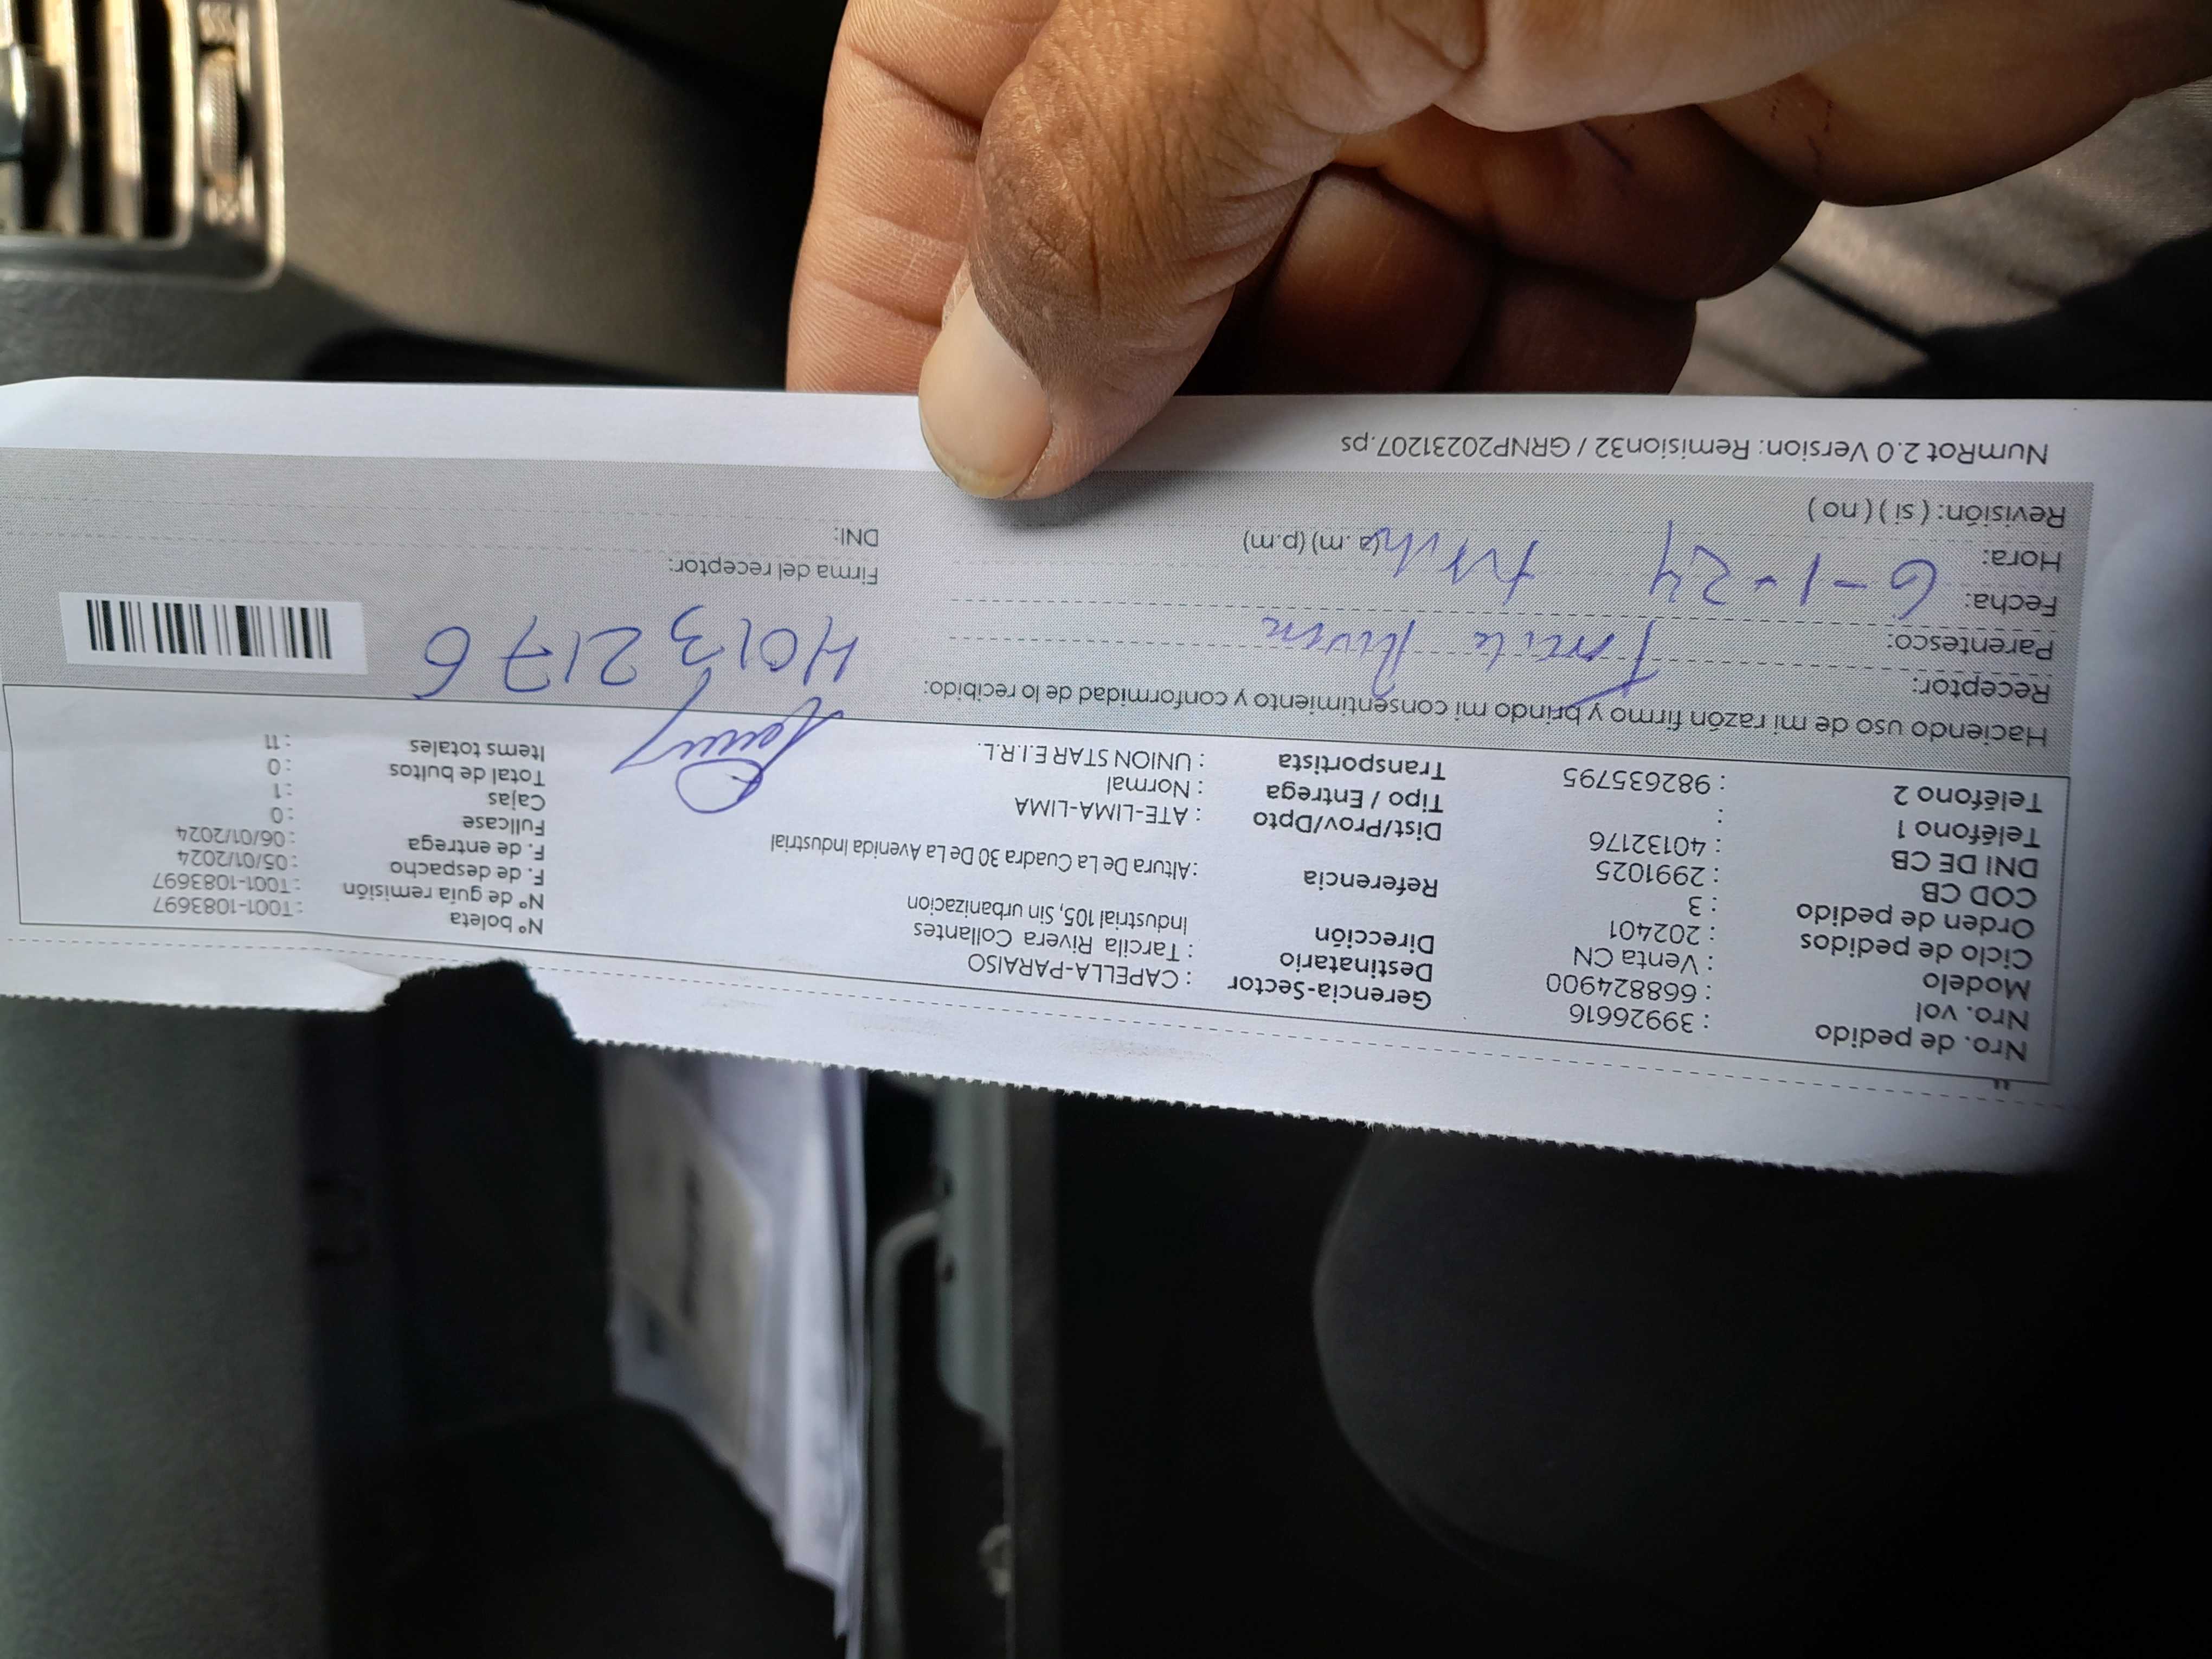 Nro. de pedido : 39926616
Nro. vol : 668824900
Modelo : Venta CN
Ciclo de pedidos : 202401
Orden de pedido : 3
COD CB : 2991025
DNI DE CB : 40132176
Teléfono 1 :
Teléfono 2 : 982635795
Gerencia-Sector : CAPELLA-PARAISO
Destinatario : Tarcila Rivera Collantes
Dirección Industrial 105, Sin urbanizacion
Referencia : Altura De La Cuadra 30 De La Avenida Industrial
Dist/Prov/Dpto : ATE-LIMA-LIMA
Tipo / Entrega : Normal
Transportista : UNION STAR E.I.R.L.
Nº boleta : T001-1083697
Nº de guía remisión : T001-1083697
F. de despacho : 05/01/2024
F. de entrega : 06/01/2024
Fullcase : 0
Cajas : 1
Total de bultos : 0
Items totales : 11
Haciendo uso de mi razón firmo y brindo mi consentimiento y conformidad de lo recibido:
Receptor:
Parentesco: Rivera
Fecha: 6-1-24
Hora: (a.m) (p.m)
Revisión: ( si ) ( no )
40132176
Firma del receptor:
DNI:
NumRot 2.0 Version: Remision32 / GRNP20231207.ps